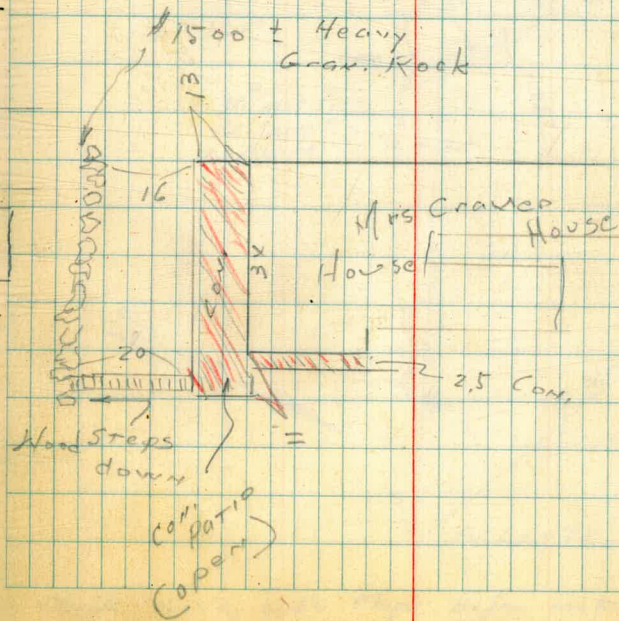 $1500 ± Heavy
Gran. Rock
13
16
Mrs Craven
House
House
Con
20
2.5 Con.
Wood Steps
down
Con. Patio
(open)